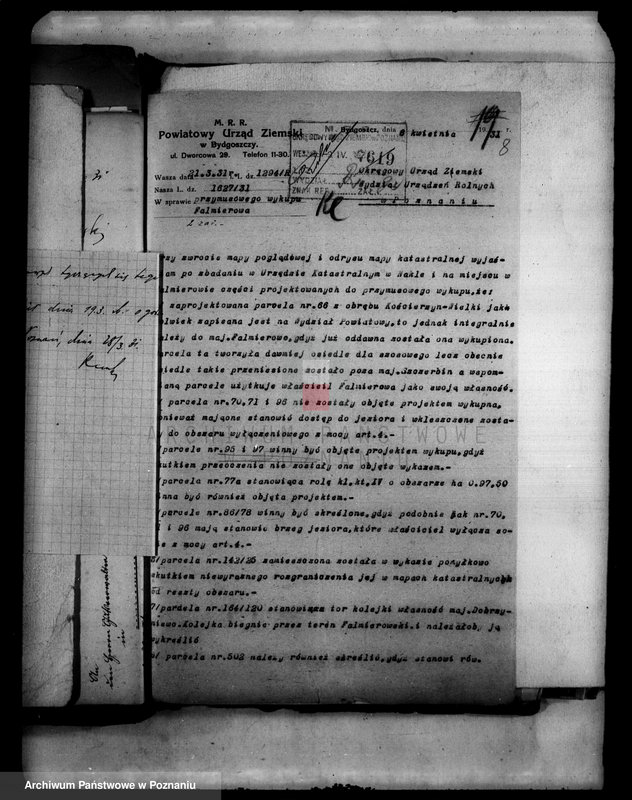 M. R. R.
Powiatowy Urząd Ziemski
w Bydgoszczy.
ul. Dworcowa 29. Telefon 11-30.
Bydgoszcz, dnia 8 kwietnia 1931 r.
19
8
7619
Wasza data 21.3.31r. L. dz. 1294/R
Nasza L. dz. 1627/31
W sprawie przymusowego wykupu
Falmierowa
2 zał.
Okręgowy Urząd Ziemski
Wydział Urządzeń Rolnych
w Poznaniu
zy zwrocie mapy poglądowej i odrysu mapy katastralnej wyjaś-
am po zbadaniu w Urzędzie Katastralnym w Nakle i na miejscu w
almierowie części projektowanych do przymusowego wykupu, że:
zaprojektowana parcela nr.66 z obrębu Kościerzyn-Wielki jako
olwiek zapisana jest na Wydział Powiatowy, to jednak integralnie
ależy do maj.Falmierowo, gdyż już oddawna została ona wykupiona.
arcela ta tworzyła dawniej osiedle dla szosowego lecz obecnie
siedle takie przeniesione zostało poza maj.Szczerbin a wspom-
aną parcele użytkuje właściciel Falmierowa jako swoją własność.
parcele nr.70,71 i 96 nie zostały objęte projektem wykupna,
onieważ mająone stanowić dostęp do jeziora i wkleszczone zosta-
do obszaru wyłączoniowego z mocy art.4.-
parcele nr.95 i 97 winny być objęte projektem wykupu, gdyż
kutkiem przeoczenia nie zostały one objęte wykazem.-
parcela nr.77a stanowiąca rolę kl.kt.IV o obszarze ha 0.97.50
inna być również objęta projektem.-
parcele nr.86/78 winny być skreślone, gdyż podobnie jak nr.70,
i 96 mają stanowić brzeg jeziora, które właściciel wyłącza so-
ie z mocy art.4.-
6/parcela nr.142/25 zamieszczona została w wykazie pomyłkowo
skutkiem niewyraźnego rozgraniczenia jej w mapach katastralnych
od reszty obszaru.-
7/parcela nr.164/120 stanowiąca tor kolejki własność maj.Dobrzy-
niewo.Kolejka biegnie przez teren Falmierowski i należałoby ją
wykreślić
8/ parcela nr.502 należy również skreślić, gdyż stanowi rów.
dnia 19.3.
dnia 28/3.31.
ARCHIWUM PAŃSTWOWE
Archiwum Państwowe w Poznaniu